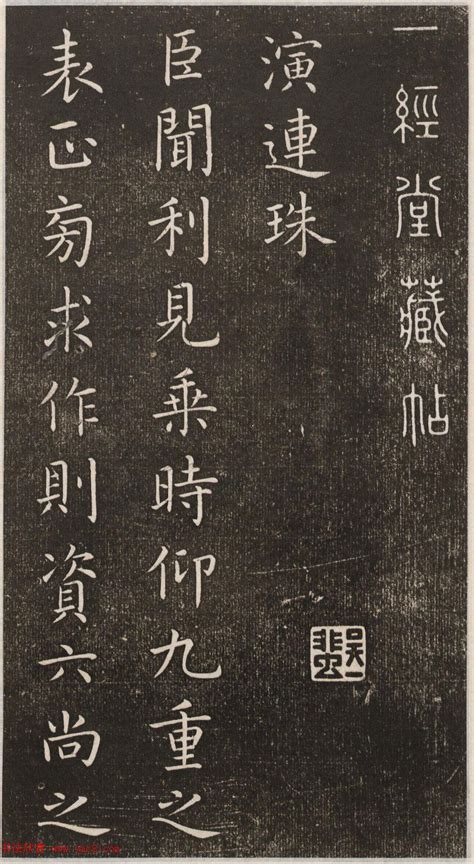 一經堂藏帖
吳一蜚
演連珠
臣聞利見乗時仰九重之
表正旁求作則資六尚之